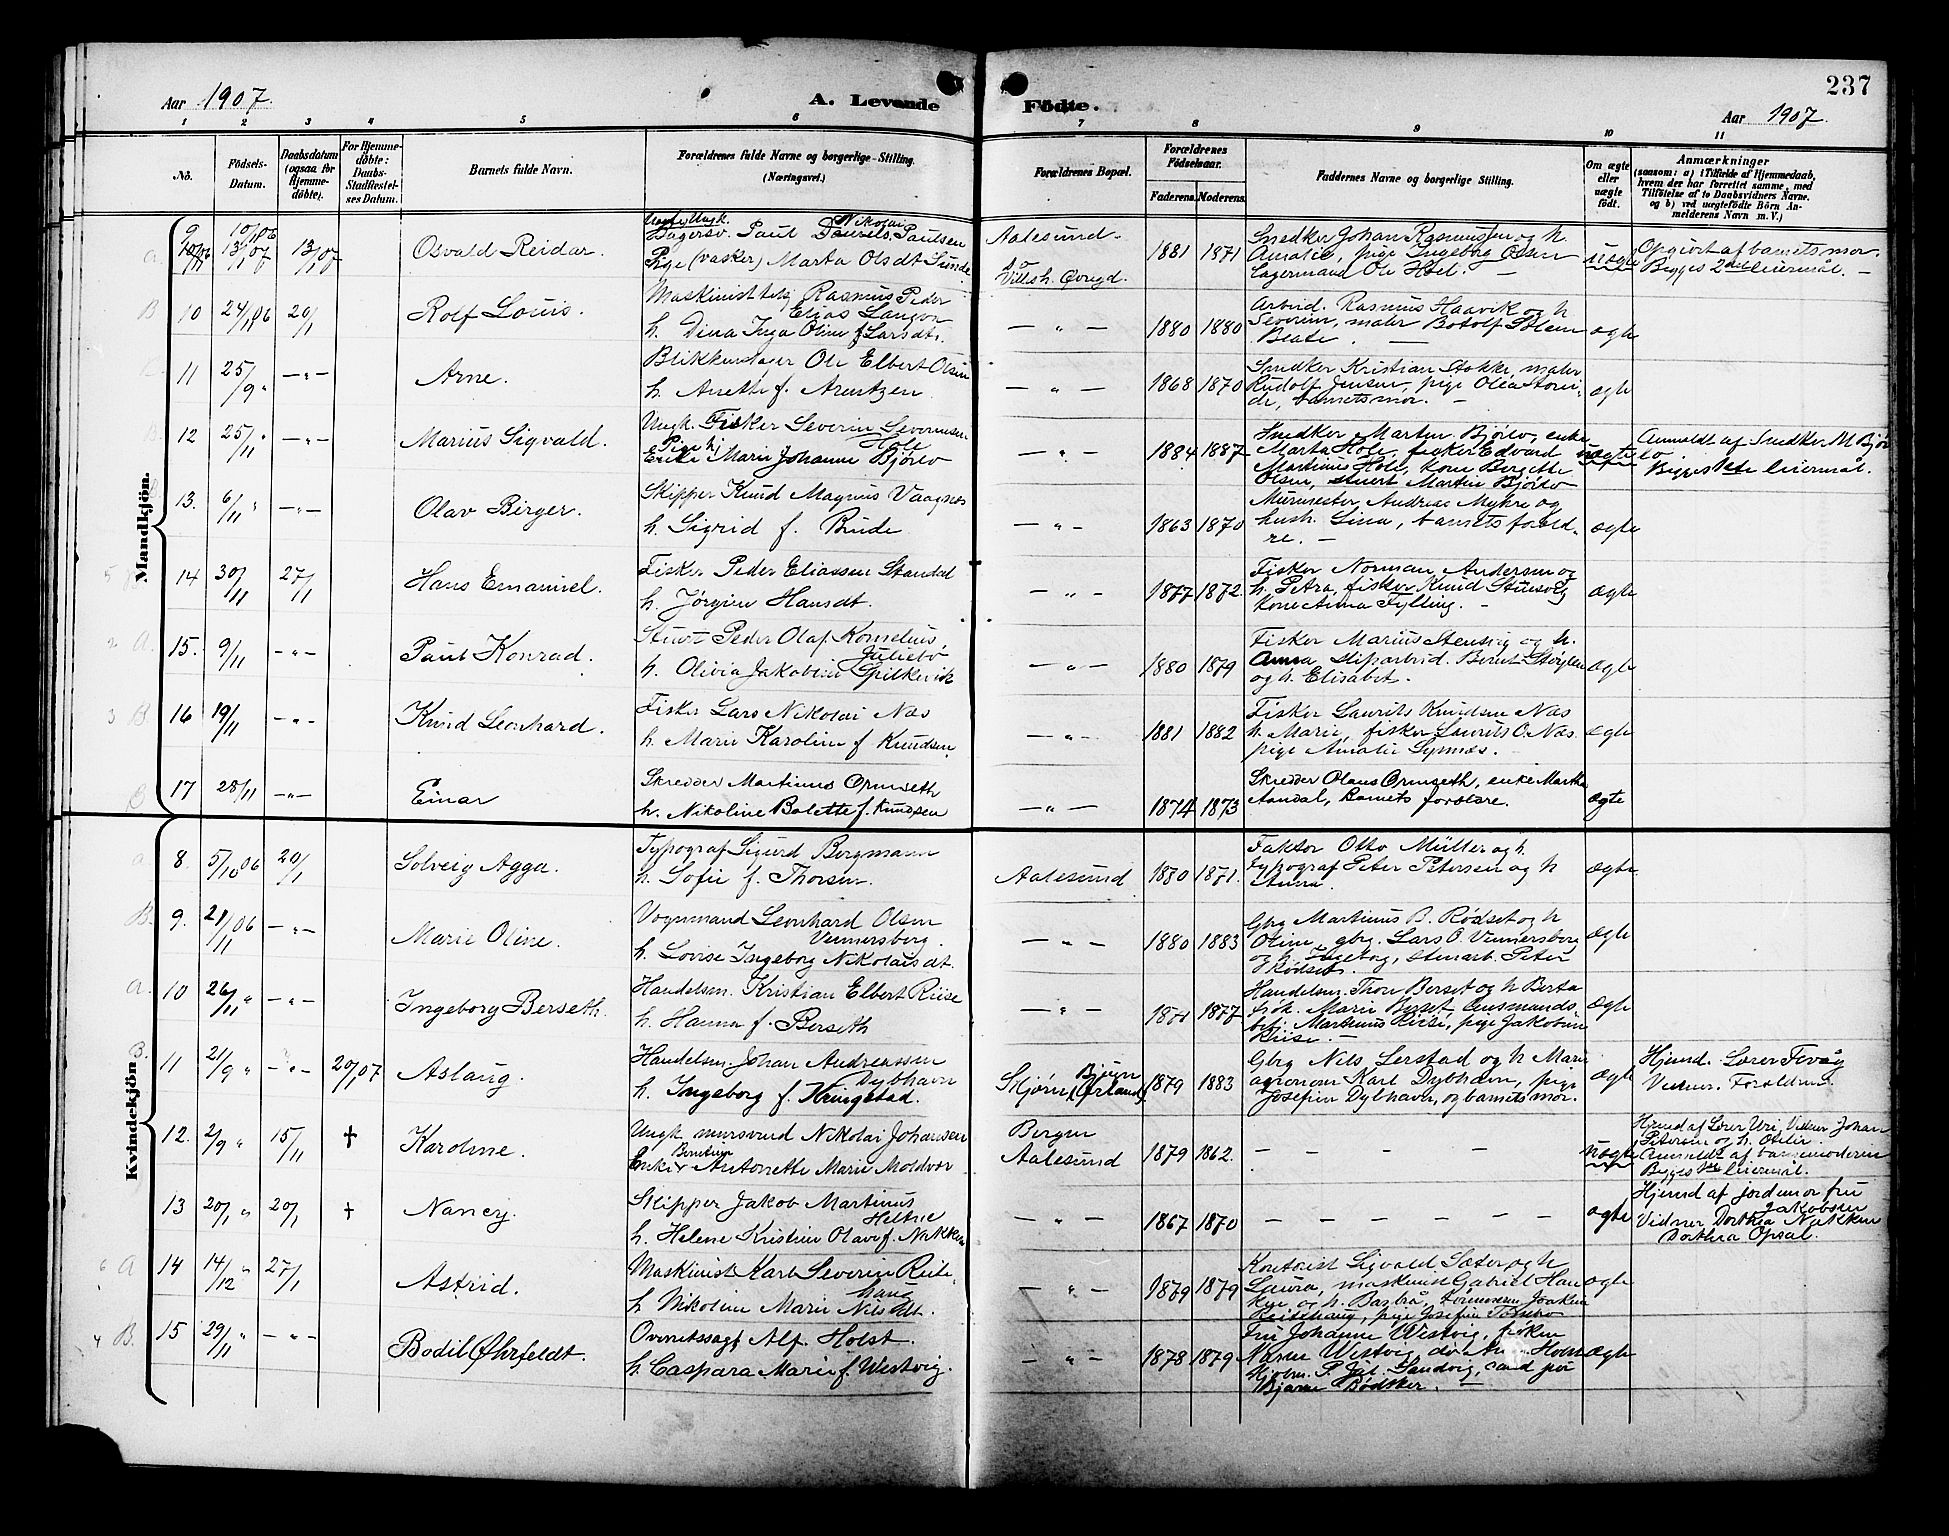 Aar 1907. A. Levende Fødte. 237
Aar 1907.
1 2 3 4 5 6 7 8 9 10 11
No.
Fødsels-Datum.
Daabsdatum (ogsaa for Hjemmedøbte).
For Hjemmedøbte: Daabs-Stadfæstelses Datum.
Barnets fulde Navn.
Forældrenes fulde Navne og borgerlige Stilling.
(Næringsvei.)
Forældrenes Bopæl.
Forældrenes Fødselsaar.
Faderens. Moderens.
Faddernes Navne og borgerlige Stilling.
Om ægte eller uægte født.
Anmærkninger
(saasom: a) i Tilfælde af Hjemmedaab,
hvem der har forrettet samme, med
Tilføielse af to Daabsvidners Navne,
og b) ved uægtefødte Børn Anmelderens Navn m. V.)
Mandkjøn.
9 13/07 Osvald Reidar
Bagersv. Paul Nikolai Paulsen
Pige (vasker) Marta Olsdt Sunde
Aalesund
1881 1871
Snedker Johan Rasmussen og h.
Amalie, pige Ingeborg Olsen
Lagermand Ole Hoel. —
uægte
Opgjort af barnets mor
Begges 2det leiermål. —
B 10 24/11 06 20/1 Rolf Louis.
Rasmus Peder
Elias Langva
h. Dina Inga Oline f. Larsdt.
— " —
1880 1880
Arbeid. Rasmus Haavik og h
Severine, maler Botolf
Beate. —
ægte
11 25/9 " — " — Arne.
Blikkenslager Ole Elbert Olsen
h. Anette f. Arentzen
— " —
1868 1870
Snedker Kristian Stokke, maler
Rudolf Jensen, pige Olea
barnets mor. —
ægte
12 25/11 " — " — Marius Sigvald.
Ungk. Fisker Severin Severinsen
Hole
Marie Johanne Bjørlo
— " —
1884 1887
Snedker Martin Bjørlo, enke
Marta Hole, fisker Edvard
Martinus Hole, kone Bergette
Olsen, stuert Martin Bjørlo
uægte
Anmeldt af Snedker M Bjør
lo.
Begges 1ste leiermål.
13. 6/11 " — " — Olav Birger.
Skipper Knud Magnus Vaagnes
h. Sigrid f. Bude
— " —
1863 1870
Murmester Andreas Myhre og
hush. Lina, barnets foræld-
re. —
ægte
14 30/11 27/1 Hans Emanuel.
Fisker Peder Eliassen Standal
h. Jørgine Hansdt.
— " —
1877 1872.
Fisker Norman Andersen og
h. Petra, fisker Knud
kone Anna Fylling. —
ægte
2 A. 15. 9/11 — " — Paul Konrad.
Stuert Peder Olaf Kornelius
Juliebø
h. Olivia Jakobine Spilkevik
— " —
1880 1879
Fisker Marius og h.
Anna sliparbeid. Bernt Støylen
og h. Elisabet.
ægte
3 B. 16 19/11 — " — Knud Leonhard.
Fisker Lars Nikolai Næs
h. Marie Karoline f. Knudsen
— " —
1881 1882
Fisker Laurits Knudsen Næs
h. Marie, fisker Laurits O. Næs
pige Amalie Synnes.
ægte
17 25/11 — " — Einar
Skredder Martinus Ormseth
h. Nikoline Bolette f. Knudsen
— " —
1874 1873
Skredder Olaus Ormseth, enke Martha
Aandal, Barnets forældre.
ægte
Kvindekjøn.
a. 8. 5/10 06 20/1 Solveig Agga.
Typograf Sigurd Bergmann
h. Sofie f. Thorsen.
Aalesund
1880 1871.
Faktor Otto Müller og h.
typograf Peter Petersen og h
Anna.
ægte
B. 9. 21/11 06 — " — Marie Oline.
Vognmand Leonhard Olsen
Vennersberg.
h. Lovise Ingeborg Nikolaisdt.
— " —
1880 1883
Gbrg Martinus B. Rødset og h
Oline, gbrg. Lars O. Vennersberg
og h. Ingeborg, stenarb. Peter
Rødset.
ægte
a. 10 26/11 " — " — Ingeborg Berseth.
Handelsm. Kristian Elbert Riise
h. Hanna f. Berseth
— " —
1871 1877
Handelsm. Thore Berset og h Berta
frøk. Marie Berset, Lensmands-
betj. Martinus Riise, pige Jakobine
Riise. —
ægte
B. 11 21/9 " — " — 20/1 07 Aslaug.
Handelsm. Johan Andreassen
Dybhavn
h. Ingeborg f. Kringstad.
Bjugn
Skjørn (Ørland)
1879 1883
Gbrg Nels Lerstad og h Marie
agronom Karl Dybhavn, pige
Josefine Dybhavn, og barnets mor.
ægte
Hjemd. Lærer
Vidner. Forældrene.
12. 2/9 " 15/11 † Karoline.
Ungk. mursvend Nikolai Johansen
Enke Antonette Marie Moldvær
Bergen
Aalesund
1879 1862.
— — — —
uægte
Hjemd af Lærer Uri, Vidner Johan
Petersen og h. Otelie
Anmeldt af barnemoderen
Begges leiermål.
13 20/1 " 20/1 † Nancy.
Skipper Jakob Martinus
Heltne
h. Helene Kristine Olave f. Nakken
— " —
1867 1870
— — — — — —
ægte
Hjemd af jordemor fru
Jakobsen
Vidner Dorthea Nakken
Dorthea Opsal.
6 A 14 14/12 " 27/1 Astrid.
Maskinist Karl Severin Reite
haug
h Nikoline Marie Nilsdt.
— " —
1879 1879
Kontorist Sigvald Sæter og h
Laura, maskinist Gabriel Han
ken og h. Barbra, Joakim
Reitehaug, pige Josefine
ægte
4 B. 15 29/11 " — " — Bodil Øhrfeldt.
Overretssagf. Alf. Holst.
h. Caspara Marie f. Westvig.
— " —
1878 1879
Fru Johanne Westvig, frøken
Maren Westvig, Holm
Sandvig, cand jur
Bjarne Bødtker. —
ægte